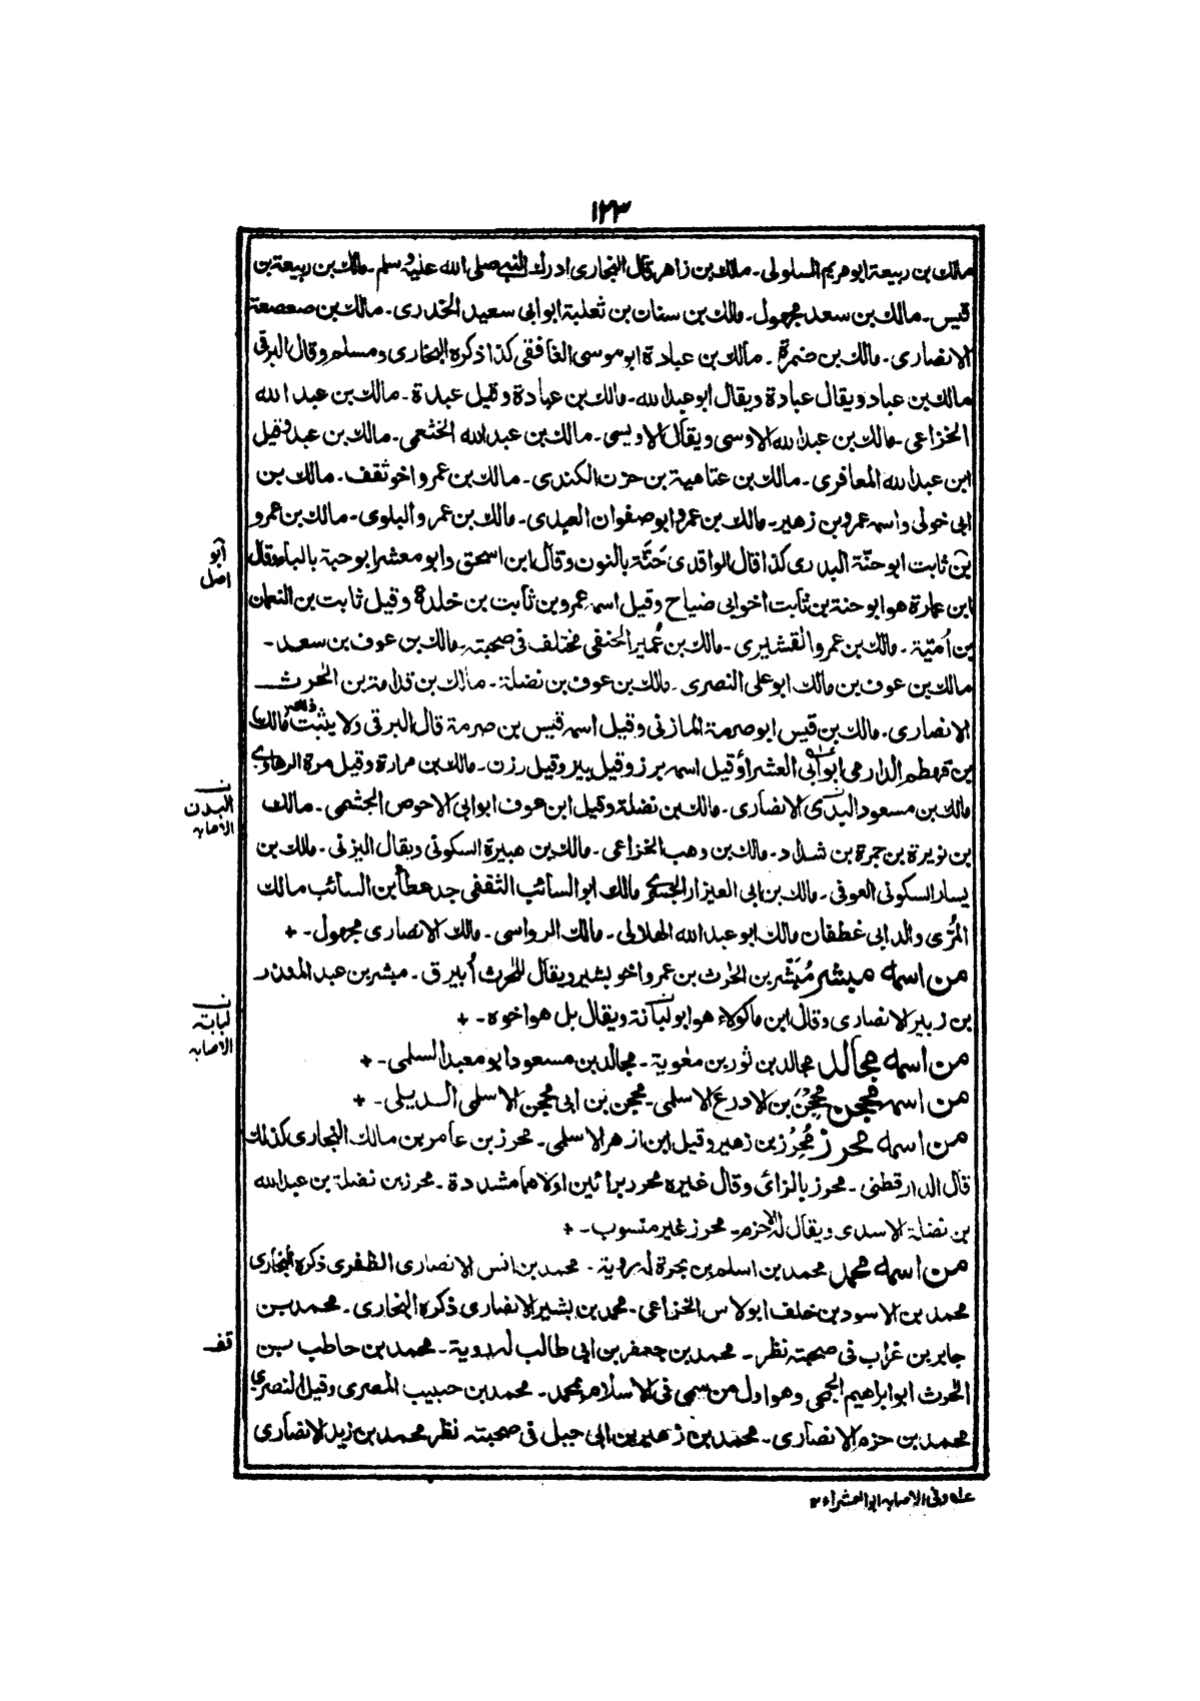 ١٢٣
مالك بن ربيعة ابو مريم السلولى ـ مالك بن زاهر قال البخارى ادرك النبى صلى الله عليه وسلم ـ مالك بن ربيعة بن
قيس ـ مالك بن سعد مجهول ـ مالك بن سنان بن ثعلبة ابو ابى سعيد الخدرى ـ مالك بن صعصعة
الانصارى ـ مالك بن ضمرة ـ مالك بن عبادة ابو موسى الغافقى كذا ذكره البخارى ومسلم وقال البرقى
مالك بن عباد ويقال عبادة ويقال ابو عبد الله ـ مالك بن عبادة وقيل عبدة ـ مالك بن عبد الله
الخزاعى ـ مالك بن عبد الله الاوسى ويقال الاويسى ـ مالك بن عبد الله الخثعمى ـ مالك بن عبد وقيل
ابن عبد الله المعافرى ـ مالك بن عتاهية بن حزن الكندى ـ مالك بن عمرو اخو ثقف ـ مالك بن
ابى خولى واسمه عمرو بن زهير ـ مالك بن عمرو ابو صفوان العبدى ـ مالك بن عمرو البلوى ـ مالك بن عمرو
بن ثابت ابو حنّة البدرى كذا قال الواقدى حَنَّة بالنون وقال ابن اسحق وابو معشر ابو حبة بالباء وقال
ابن عمارة هو ابو حنة بن ثابت اخو ابى ضياح وقيل اسمه عمرو بن ثابت بن خلدة وقيل ثابت بن النعمان
بن اُمَيّة ـ مالك بن عمرو القشيرى ـ مالك بن عُمير الحنفى مختلف فى صحبته ـ مالك بن عوف بن سعد ـ
مالك بن عوف بن مالك ابو على النصرى ـ مالك بن عوف بن نضلة ـ مالك بن قدامة بن الحرث
الانصارى ـ مالك بن قيس ابو صرمة المازنى وقيل اسمه قيس بن صرمة قال البرقى ولا يثبت مالك
بن قهطم الدارمى ابو ابى العشراء وقيل اسمه برز وقيل بيز وقيل رزن ـ مالك بن مرارة وقيل مرة الرهاوى
مالك بن مسعود البدى الانصارى ـ مالك بن نضلة وقيل ابن عوف ابو ابى الاحوص الجشمى ـ مالك
بن نويرة بن جمرة بن شداد ـ مالك بن وهب الخزاعى ـ مالك بن هبيرة السكونى ويقال اليزنى ـ مالك بن
يسار السكونى العوفى ـ مالك بن ابى العيزار مالك ابو السائب الثقفى جد عطاء بن السائب مالك
المُرّى والد ابى غطفان مالك ابو عبد الله الهلالى ـ مالك الرواسى ـ مالك الانصارى مجهول ـ +
من اسمه مبشر مُبَشّر بن الحٰرث بن عمرو اخو بشير ويقال للحٰرث اُبيرق ـ مبشر بن عبد المنذر
بن زبير الانصارى وقال ابن ماكولاء هو ابو لبانة ويقال بل هو اخوه ـ +
من اسمه مجالد مجالد بن ثور بن معٰوية ـ مجالد بن مسعود ابو معبد السلمى ـ +
من اسمه محجن محجن بن الادرع الاسلمى ـ محجن بن ابى محجن الاسلمى الديلى ـ +
من اسمه محرز مُحرِز بن زهير وقيل ابن ازهر الاسلمى ـ محرز بن عامر بن مالك النجارى كذلك
قال الدارقطنى ـ محرز بالزائ وقال غيره محرر برائين اولاهما مشددة ـ محرز بن نضلة بن عبد الله
بن نضلة الاسدى ويقال له الاخرم ـ محرز غير منسوب ـ +
من اسمه محمد محمد بن اسلم بن بجرة له روية ـ محمد بن انس الانصارى الظفرى ذكره البخارى
محمد بن الاسود بن خلف ابو لاس الخزاعى ـ محمد بن بشير الانصارى ذكره البخارى ـ محمد بن
جابر بن غراب فى صحبته نظر ـ محمد بن جعفر بن ابى طالب له روية ـ محمد بن حاطب بن
الحٰرث ابو ابراهيم الجمحى وهو اول من سمى فى الاسلام محمد ـ محمد بن حبيب المصرى وقيل النصرى
محمد بن حزم الانصارى ـ محمد بن زهير بن ابى جبل فى صحبته نظر محمد بن زيد الانصارى
ابو
اصل
البدن
الاصابه
لبابة
الاصابه
قف
عله وفى الاصابه ابو العشراء ٢